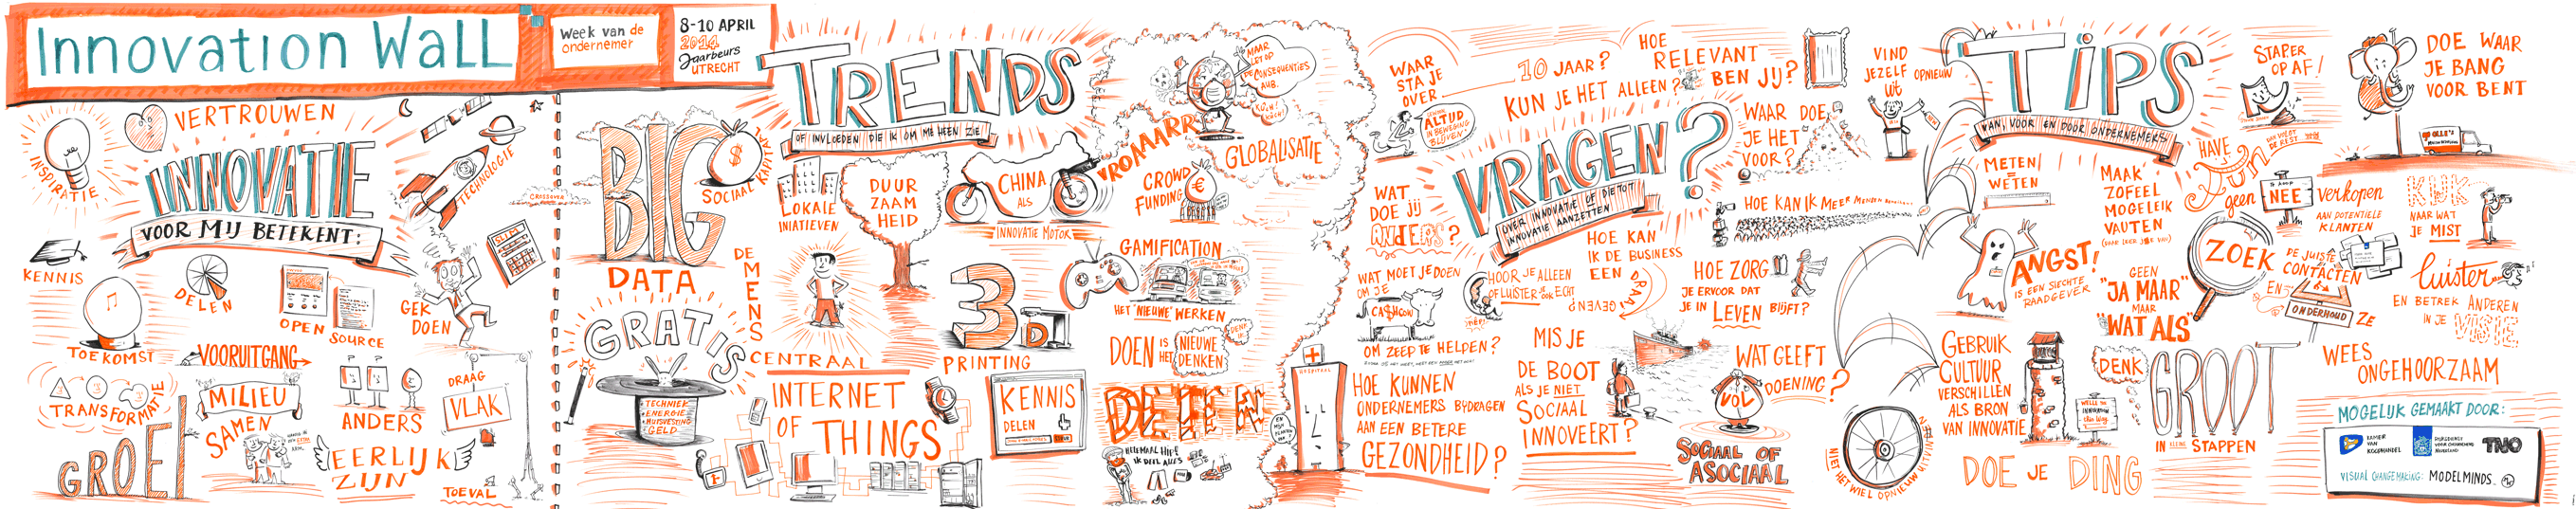 Innovation Wall
Week van de
ondernemer
8-10 APRIL
2014
Jaarbeurs
UTRECHT
INSPIRATIE
VERTROUWEN
INNOVATIE
VOOR MIJ BETEKENT:
TECHNOLOGIE
CROSSOVER
KENNIS
DELEN
OPEN
SOURCE
GEK
DOEN
TOEKOMST
VOORUITGANG
TRANSFORMATIE
MILIEU
SAMEN
ANDERS
DRAAG
VLAK
GROEI
EERLIJK
ZIJN
TOEVAL
TRENDS
OF INVLOEDEN DIE IK OM ME HEEN ZIE
BIG
DATA
$
SOCIAAL KAPITAAL
LOKALE
INIATIEVEN
DUUR
ZAAM
HEID
CHINA
ALS
INNOVATIE MOTOR
VROAAARR
CROWD
FUNDING
€
GLOBALISATIE
MAAR
LET OP
DE CONSEQUENTIES
AUB.
KUCH!
KUCH!
GRATIS
TECHNIEK
ENERGIE
HUISVESTING
GELD
DE
MENS
CENTRAAL
3D
PRINTING
GAMIFICATION
HET "NIEUWE" WERKEN
DOEN IS HET NIEUWE DENKEN
DENK
INTERNET
OF THINGS
KENNIS
DELEN
DELEN
HELEMAAL HIP!
IK DEEL ALLES
HOSPITAAL
VRAGEN?
OVER INNOVATIE OF DIE TOT
INNOVATIE AANZETTEN
WAAR
STA JE
OVER
10 JAAR?
ALTIJD
IN BEWEGING
BLIJVEN
KUN JE HET ALLEEN?
HOE
RELEVANT
BEN JIJ?
WAAR DOE
JE HET
VOOR?
WAT
DOE JIJ
ANDERS?
HOE KAN IK MEER MENSEN
WAT MOET JE DOEN
OM JE
CA$HCOW
OM ZEEP TE HELPEN?
HOOR JE ALLEEN
OF LUISTER JE OOK ECHT
HOE KAN
IK DE BUSINESS
EEN DRAAI
GEVEN?
HOE ZORG
JE ERVOOR DAT
JE IN LEVEN BLIJFT?
HOE KUNNEN
ONDERNEMERS BIJDRAGEN
AAN EEN BETERE
GEZONDHEID?
MIS JE
DE BOOT
ALS JE NIET
SOCIAAL
INNOVEERT?
WAT GEEFT
VOL DOENING?
SOCIAAL OF
ASOCIAAL
TIPS
VAN, VOOR EN DOOR ONDERNEMERS
VIND
JEZELF OPNIEUW
UIT
STAP ER
OP AF!
DOE WAAR
JE BANG
VOOR BENT
METEN
=
WETEN
MAAK
ZOFEEL
MOGELEIK
VAUTEN
HAVE
FUN
DAN VOLGT
DE REST
geen
NEE
verkopen
AAN POTENTIELE
KLANTEN
KIJK
NAAR WAT
JE MIST
ANGST!
IS EEN SLECHTE
RAADGEVER
GEEN
"JA MAAR"
MAAR
"WAT ALS
ZOEK
DE JUISTE
CONTACTEN
EN
ONDERHOUD ZE
luister
EN BETREK ANDEREN
IN JE VISIE
GEBRUIK
CULTUUR
VERSCHILLEN
ALS BRON
VAN INNOVATIE
DENK
GROOT
IN KLEINE STAPPEN
WEES
ONGEHOORZAAM
NIET HET WIEL OPNIEUW UITVINDEN
DOE JE DING
MOGELIJK GEMAAKT DOOR:
KAMER
VAN
KOOPHANDEL
TNO
VISUAL CHANGEMAKING: MODELMINDS